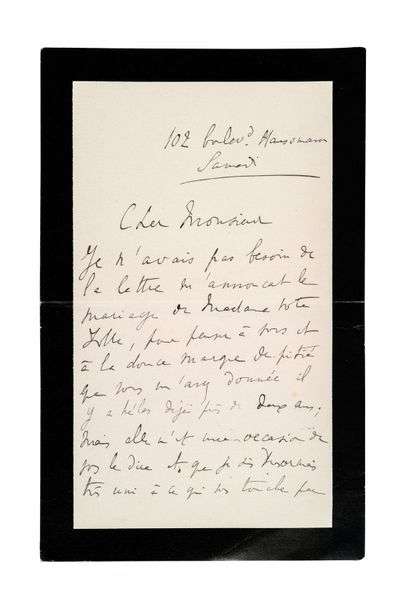 102 boulevd Haussmann
Samedi
Cher Monsieur
Je n'avais pas besoin de
la lettre m'annoncant le
mariage de Madame votre
fille, pour penser à vous et
à la douce marque de pitié
que vous m'avez donnée il
y a hélas déjà près de deux ans ;
mais elle m'est une occasion de
vous le dire et que je suis désormais
très uni à ce qui vous touche par